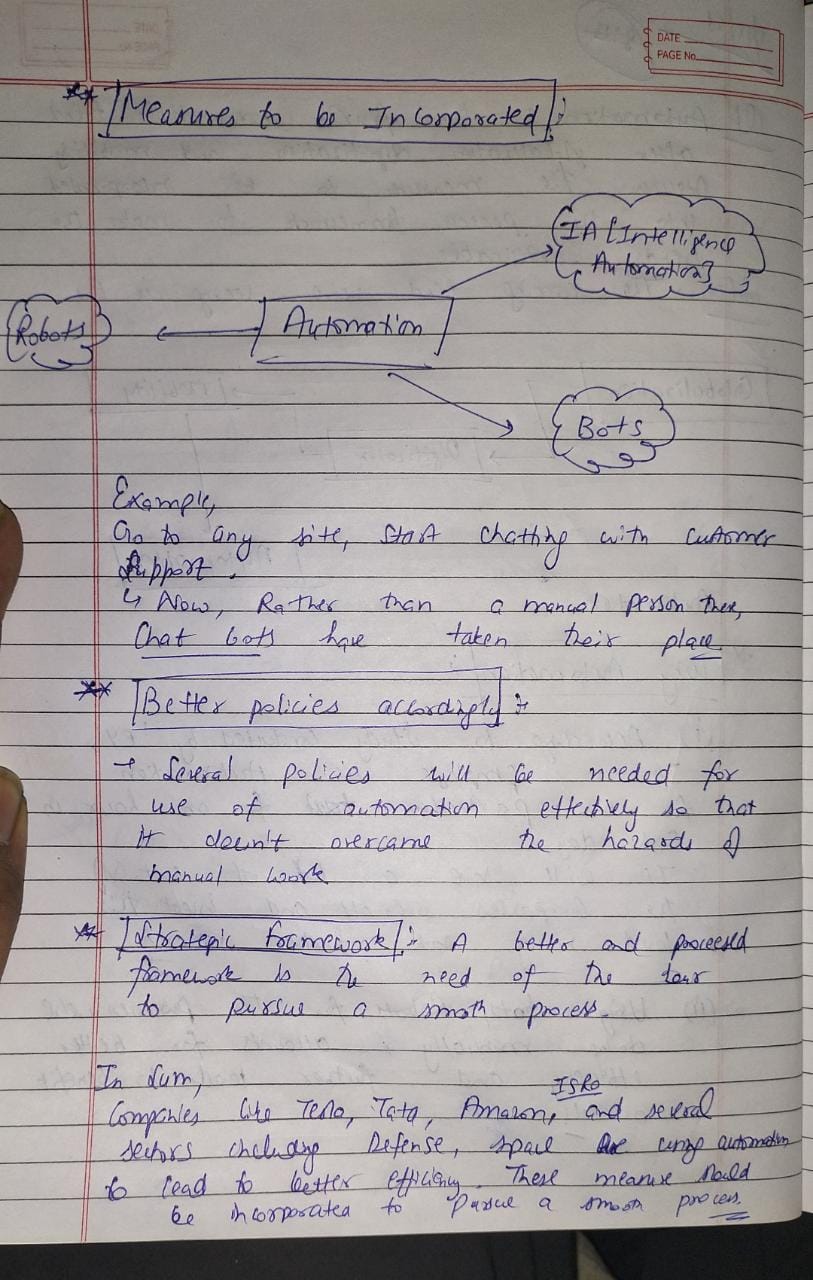 DATE
PAGE No.
** Measures to be Incorporated :
IA [Intelligence
Automation]
Robots
Automation
Bots
Example,
Go to any site, start chatting with customer
support.
↳ Now, Rather than a manual person there,
Chat bots have taken their place
** Better policies accordingly :-
→ Several policies will be needed for
use of automation effectively so that
it doesn't overcame the hazards of
manual work
** Strategic framework :- A better and
framework is the need of the
to pursue a smoth process.
In Sum,
ISRO
Companies like Tesla, Tata, Amazon, and several
sectors including Defense, space are using automation
to lead to better efficiency. These measure should
be incorporated to pursue a smooth process.